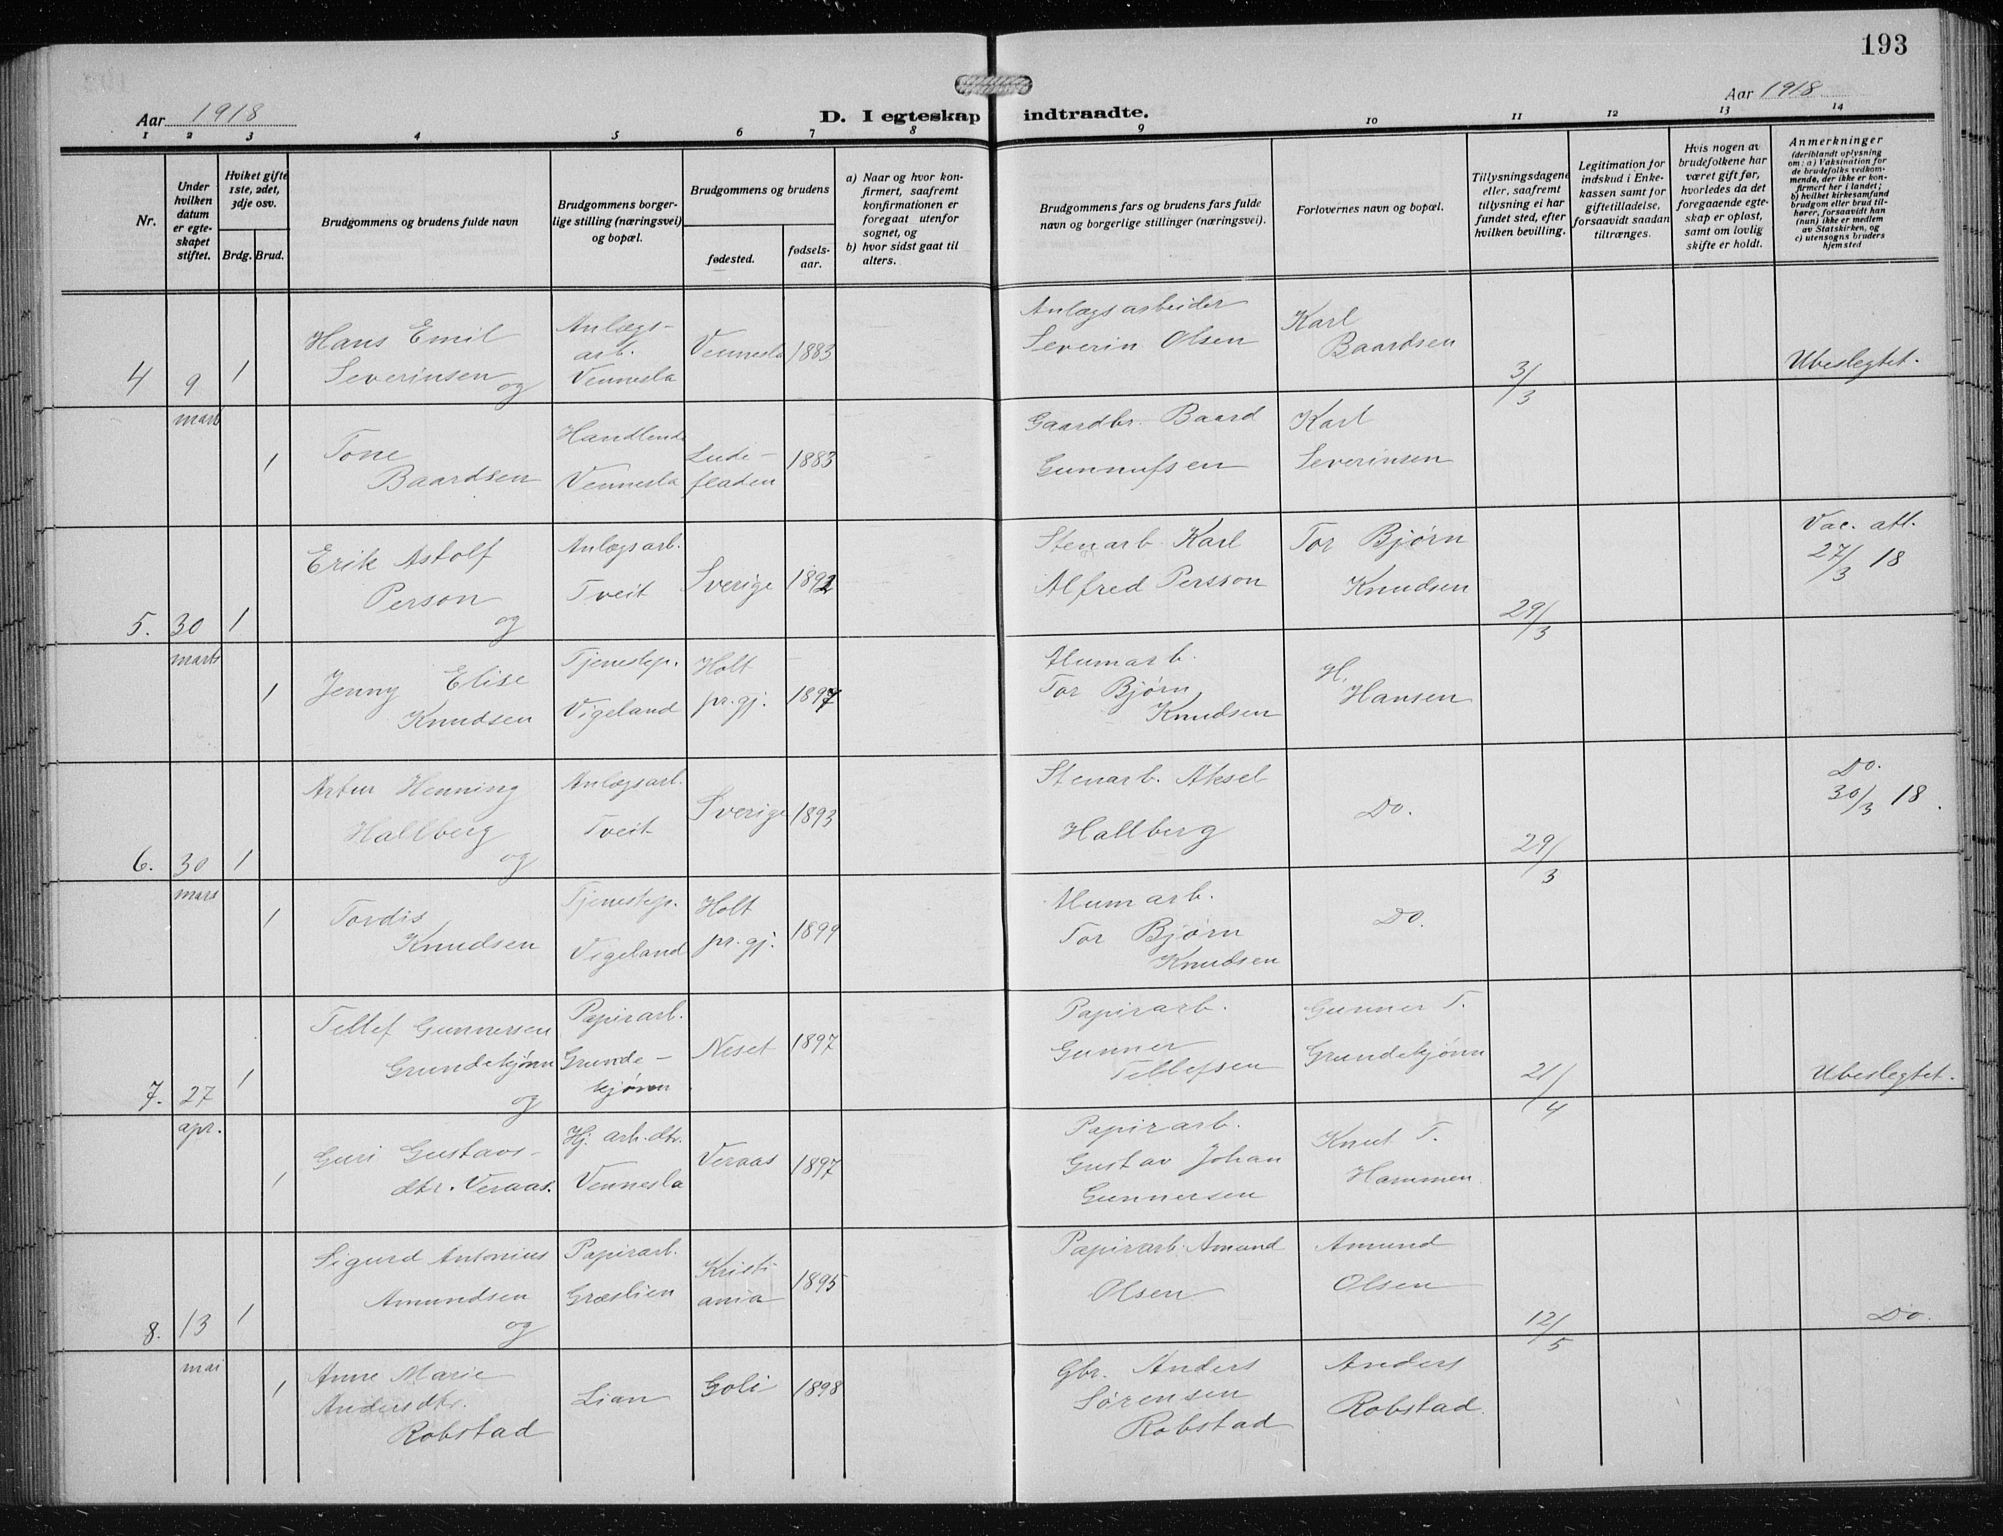 193
Aar 1918
D. I egteskap indtraadte.
Aar 1918
1 2 3 4 5 6 7 8 9 10 11 12 13 14
Nr.
Under hvilken datum er egteskapet stiftet.
Hviket gifte 1ste, 2det, 3dje osv.
Brdg. Brud.
Brudgommens og brudens fulde navn
Brudgommens borgerlige stilling (næringsvei) og bopæl.
Brudgommens og brudens
fødested.
fødselsaar.
a) Naar og hvor konfirmert, saafremt konfirmationen er foregaat utenfor sognet, og
b) hvor sidst gaat til alters.
Brudgommens fars og brudens fars fulde navn og borgerlige stillinger (næringsvei).
Forlovernes navn og bopæl.
Tillysningsdagene eller, saafremt tillysning ei har fundet sted, efter hvilken bevilling.
Legitimation for indskud i Enkekassen samt for giftetilladelse, forsaavidt saadan tiltrænges.
Hvis nogen av brudefolkene har været gift før, hvorledes da det foregaaende egteskap er opløst, samt om lovlig skifte er holdt.
Anmerkninger
(deriblandt oplysning om: a) Vaksination for de brudefolks vedkommende, der ikke er konfirmert her i landet; b) hvilket kirkesamfund brudgom eller brud tilhører, forsaavidt han (hun) ikke er medlem av Statskirken, og c) utensogns bruders hjemsted
4 9 mars 1
Hans Emil
Severinsen og
Anlægs-
arb.
Vennesla
Vennesla 1883
Anlægsarbeider
Severin Olsen
Karl
Baardsen
3/3
Ubeslegtet.
1
Tone
Baardsen
Handlende
Vennesla
fladen
1883
Gaardbr. Baard
Gunnufsen
Karl
Severinsen
5. 30 marts 1
Erik Astolf
Person
og
Anlægsarb.
Tveit
Sverige 1892
Stenarb. Karl
Alfred Persson
Tor Bjørn
Knudsen
29/3
Vac. att.
27/3 18
1
Jenny Elise
Knudsen
Tjenestep.
Vigeland
Holt
pr.gj.
1897
Alumarb.
Tor Bjørn
Knudsen
H.
Hansen
6. 30 mars 1
Artur Henning
Hallberg
og
Anlægsarb.
Tveit
Sverige 1893
Stenarb. Aksel
Hallberg
Do.
29/3
Do.
30/3 18.
1
Tordis
Knudsen
Tjenestep.
Vigeland
Holt
pr.gj.
1899
Alumarb.
Tor Bjørn
Knudsen
Do.
7. 27 apr. 1
Tellef Gunnersen
Grundekjønn
og
Papirarb.
Grunde-
kjønn
Neset 1897
Papirarb.
Gunner
Tellefsen
Gunner T.
Grundekjønn
21/4
Ubeslegtet.
1
Guri Gustavs-
dtr. Veraas.
Hj. arb. dtr.
Vennesla
Veraas 1897
Papirarb.
Gustav Johan
Gunnersen
Knut T.
Hommen
8. 13 mai 1
Sigurd Antonius
Amundsen
og
Papirarb.
Græslien
Kristi
ania
1895
Papirarb. Amund
Olsen
Amund
Olsen
12/5
Do.
1
Anne Marie
Andersdtr.
Robstad
Lian
Goli 1898
Gbr. Anders
Sørensen
Robstad
Anders
Robstad.